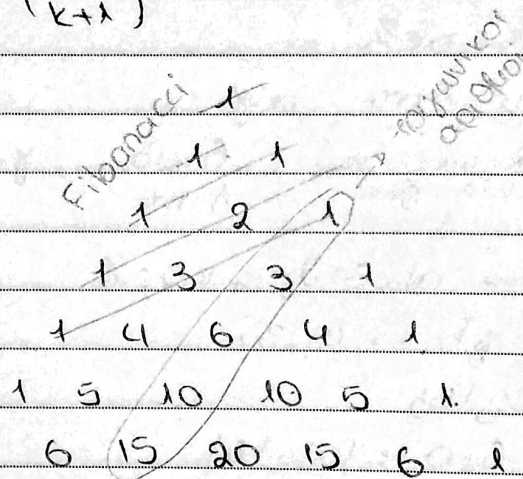 (k+1)
Fibonacci
τριγωνικοί
αριθμοί
1
1 1
1 2 1
1 3 3 1
1 4 6 4 1
1 5 10 10 5 1.
6 15 20 15 6 1